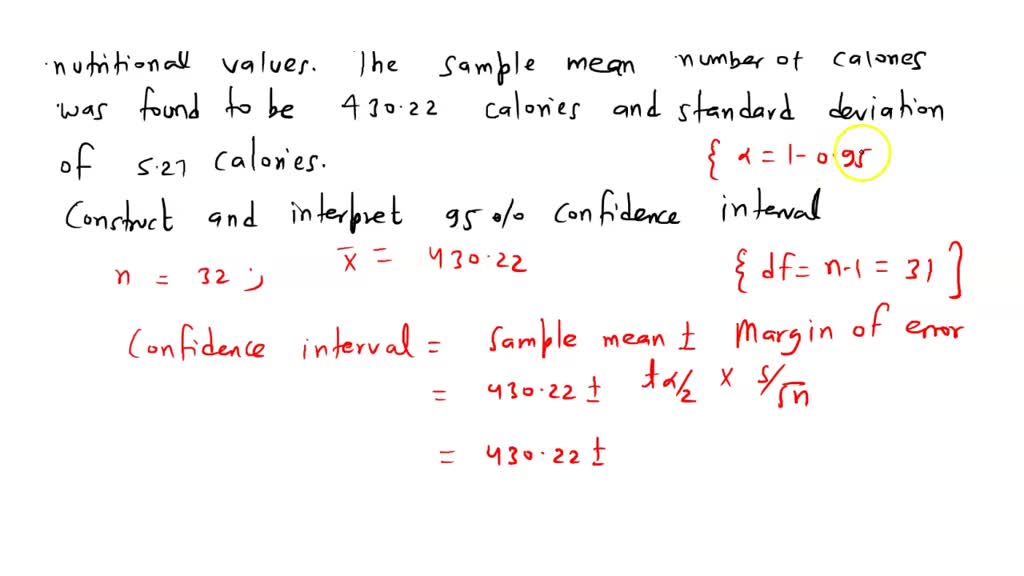 nutritional values. The sample mean number of calories
was found to be 430.22 calories and standard deviation
of 5.27 calories. { α = 1 - 0.95
Construct and interpret 95 % confidence interval
n = 32 ; x̄ = 430.22 { df = n-1 = 31 }
Confidence interval = Sample mean ± Margin of error
= 430.22 ± tα/2 × s/√n
= 430.22 ±